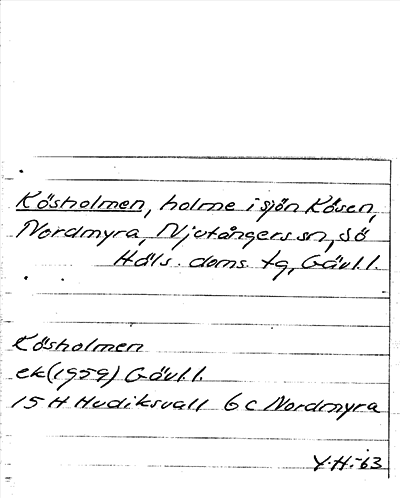 Kösholmen, holme i sjön Kösen,
Nordmyra, Njutångers sn, Sö
Häls. doms. tg, Gävl.l.
Kösholmen
ek(1959) Gävl.l.
15 H Hudiksvall 6 c Nordmyra
Y.H.-63